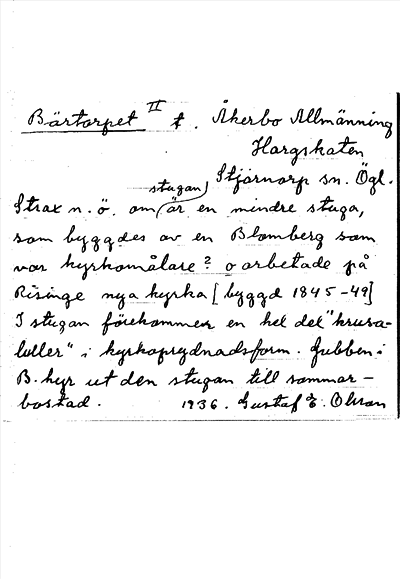 Bärtorpet II t. Åkerbo Allmänning
Hargskaten
Stjärnorp sn. Ögl.
Strax n. ö. om (stugan) är en mindre stuga,
som byggdes av en Blomberg som
var kyrkomålare? o arbetade på
Risinge nya kyrka [byggd 1845-49]
I stugan förekommer en hel del "krusa-
luller" i kyrkoprydnadsform. Gubben i
B. hyr ut den stugan till sommar-
bostad. 1936. Gustaf E. Olson